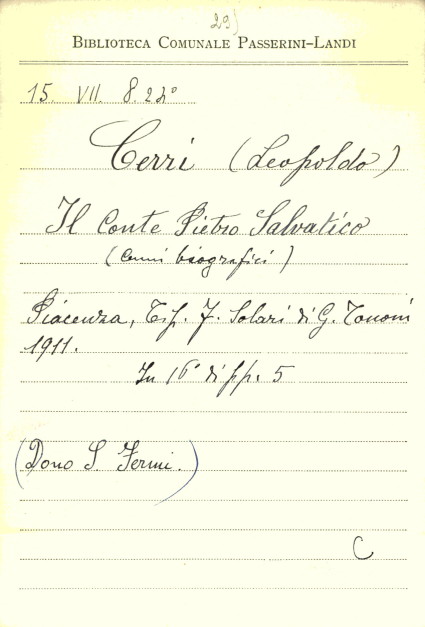 29)
BIBLIOTECA COMUNALE PASSERINI-LANDI
15. VII. 8. 22°
Cerri (Leopoldo)
Il Conte Pietro Salvatico
(Cenni biografici)
Piacenza, Tip. F. Solari di G. Tononi
1911.
In 16° di pp. 5
(Dono S Fermi.)
C